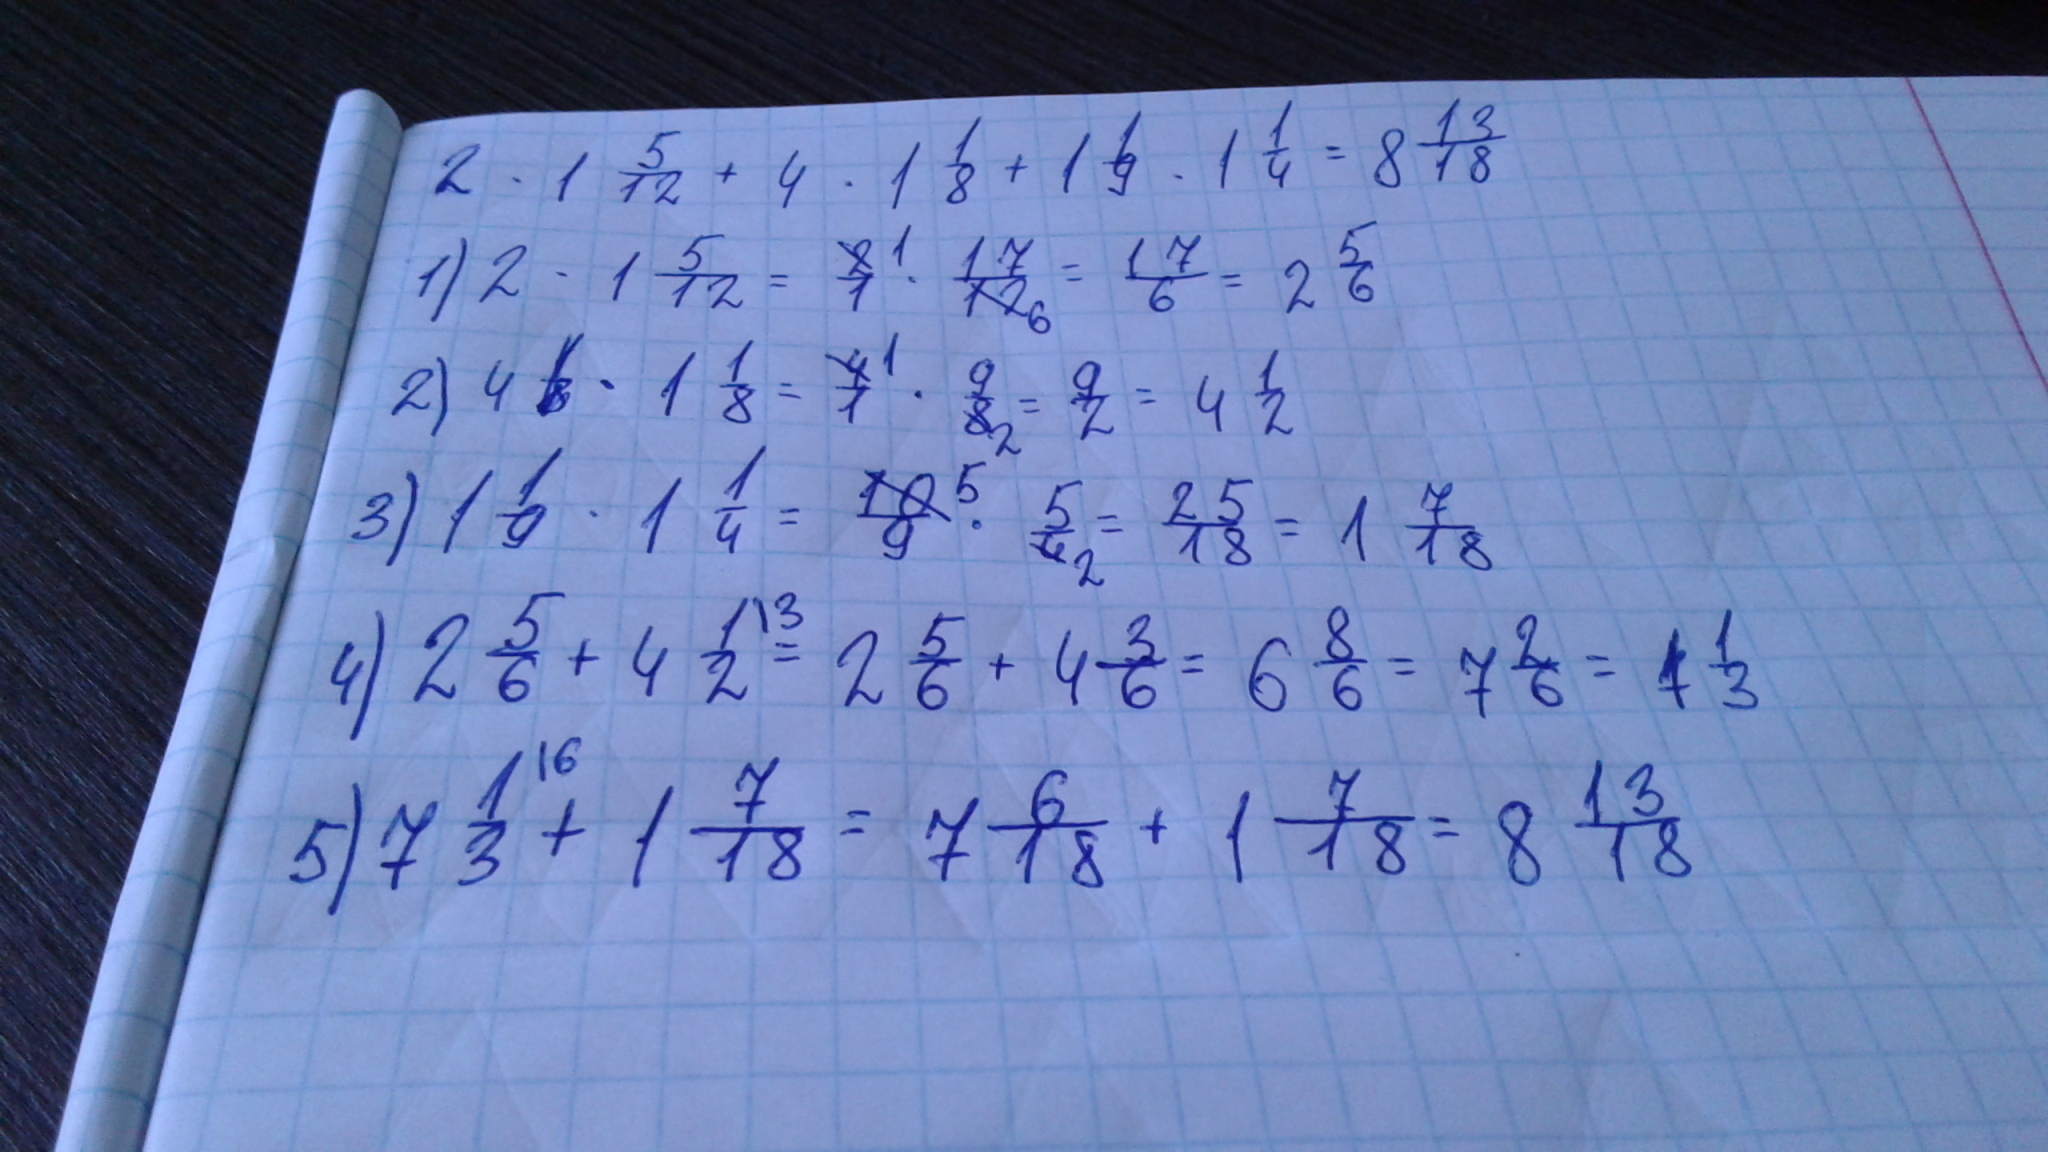 2 · 1 5/12 + 4 · 1 1/8 + 1 1/9 · 1 1/4 = 8 13/18
1) 2 · 1 5/12 = 2/1 1 · 17/12 6 = 17/6 = 2 5/6
2) 4 · 1 1/8 = 4/1 1 · 9/8 2 = 9/2 = 4 1/2
3) 1 1/9 · 1 1/4 = 10/9 5 · 5/4 2 = 25/18 = 1 7/18
4) 2 5/6 + 4 1/2 \3 = 2 5/6 + 4 3/6 = 6 8/6 = 7 2/6 = 7 1/3
5) 7 1/3 \6 + 1 7/18 = 7 6/18 + 1 7/18 = 8 13/18